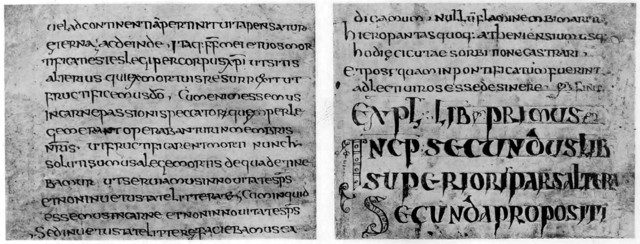 uel ad continentiā pertinet uita pensatur
aeterna, ac deinde, Itaq; frs mei et uos mor
tificati estis legi per corpus xpi ut sitis
alterius qui ex mortuis resurrexit ut
fructificemus dō, Cum enim essemus
in carne passiones peccatorū quae per le
gem erant operabantur in membris
nīs, ut fructificarent morti nunc
soluti sumus a lege mortis de qua detine
bamur ut seruiamus in nouitate spš
et non in uetustate litterae, Cum inquid
essemus in carne et non in nouitate spš
sed in uetustate litterae faciebamus ea
dicamum, nullū flaminem bimaritū
hieropantas quoq; atheniensium usq;
hodie cicutae sorbitione castrari,
et postquam in pontificatum fuerint
adlecti uiros esse desinere
Expl lib primus
Incp secundus lib
superioris pars altera
Secunda propositi